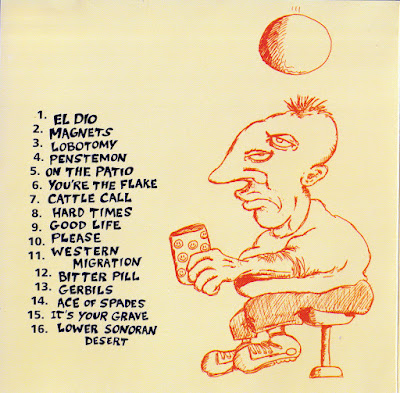 1. EL DIO
2. MAGNETS
3. LOBOTOMY
4. PENSTEMON
5. ON THE PATIO
6. YOU'RE THE FLAKE
7. CATTLE CALL
8. HARD TIMES
9. GOOD LIFE
10. PLEASE
11. WESTERN
MIGRATION
12. BITTER PILL
13. GERBILS
14. ACE OF SPADES
15. IT'S YOUR GRAVE
16. LOWER SONORAN
DESERT